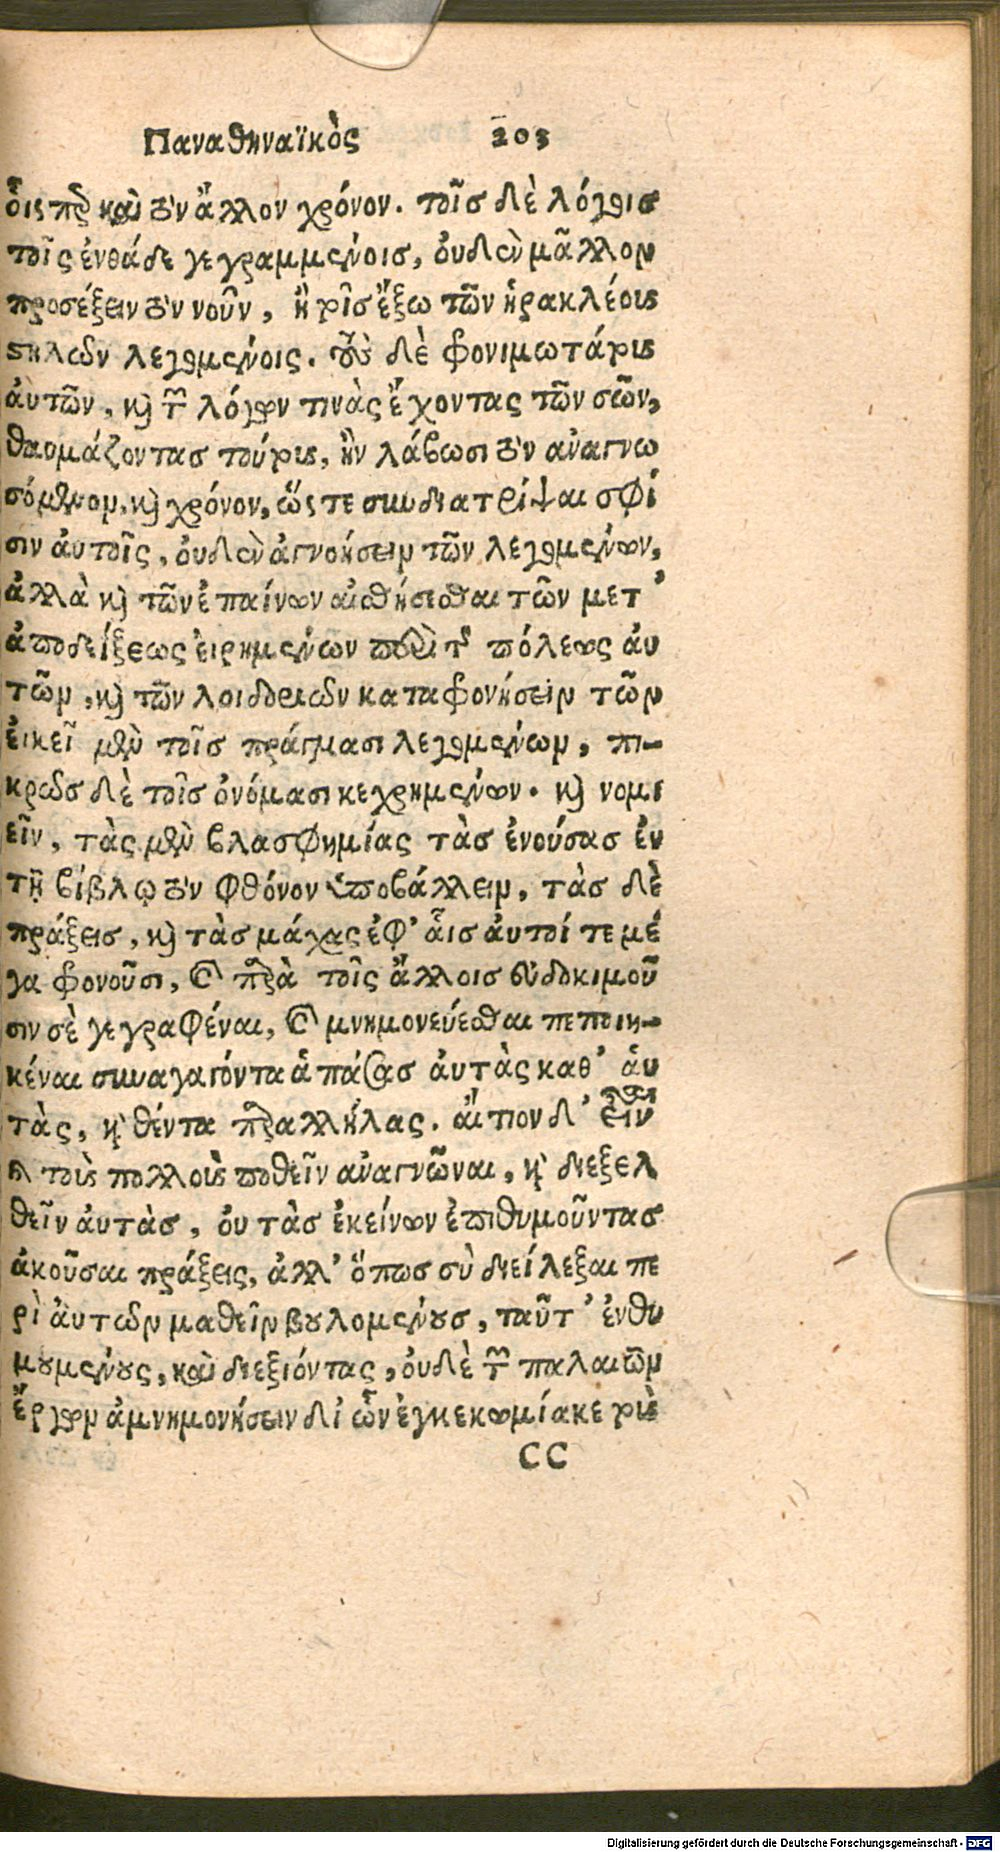 Παναθηναϊκὸς 203
οἷς περ καὶ τὸν ἄλλον χρόνον. τοῖς δὲ λόγοις
τοῖς ἐνθάδε γεγραμμένοις, οὐδὲν μᾶλλον
προσέξειν τὸν νοῦν, ἢ τοῖς ἔξω τῶν ἡρακλέους
στηλῶν λεγομένοις. τοὺς δὲ φρονιμωτάτους
αὐτῶν, καὶ τῶν λόγων τινὰς ἔχοντας τῶν σῶν,
θαυμάζοντας τούτους, ἢν λάβωσι τὸν ἀναγνω
σόμενον, καὶ χρόνον, ὥστε συνδιατρίψαι σφί
σιν αὐτοῖς, οὐδὲν ἀγνοήσειν τῶν λεγομένων,
ἀλλὰ καὶ τῶν ἐπαίνων αἰσθήσεσθαι τῶν μετ'
ἀποδείξεως εἰρημένων περὶ τῆς πόλεως αὐ
τῶν, καὶ τῶν λοιδοριῶν καταφρονήσειν τῶν
εἰκεῖ μὲν τοῖς πράγμασι λεγομένων, πι-
κρῶς δὲ τοῖς ὀνόμασι κεχρημένων. καὶ νομι
εῖν, τὰς μὲν βλασφημίας τὰς ἐνούσας ἐν
τῇ βίβλῳ τὸν φθόνον ὑποβάλλειν, τὰς δὲ
πράξεις, καὶ τὰς μάχας ἐφ' αἷς αὐτοί τε μέ
γα φρονοῦσι, καὶ παρὰ τοῖς ἄλλοις εὐδοκιμοῦ
σιν σὲ γεγραφέναι, καὶ μνημονεύεσθαι πεποιη-
κέναι συναγαγόντα ἁπάσας αὐτὰς καθ' αὑ
τὰς, καὶ θέντα παραλλήλας. αἴτιον δ' ἔσεσθαι
τοὺς πολλοὺς ποθεῖν ἀναγνῶναι, καὶ διεξελ
θεῖν αὐτὰς, οὐ τὰς ἐκείνων ἐπιθυμοῦντας
ἀκοῦσαι πράξεις, ἀλλ' ὅπως σὺ διείλεξαι πε
ρὶ αὐτῶν μαθεῖν βουλομένους, ταῦτ' ἐνθυ
μουμένους, καὶ διεξιόντας, οὐδὲ τῶν παλαιῶν
ἔργων ἀμνημονήσειν δι' ὧν ἐγκεκωμίακε τοὺς
CC
Digitalisierung gefördert durch die Deutsche Forschungsgemeinschaft - DFG